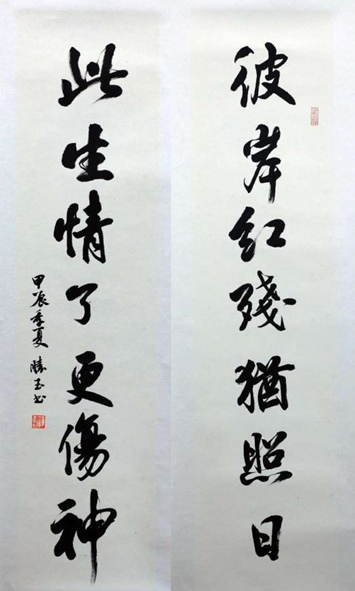 彼岸红殘猶照日
此生情了更傷神
甲辰季夏 勝玉书